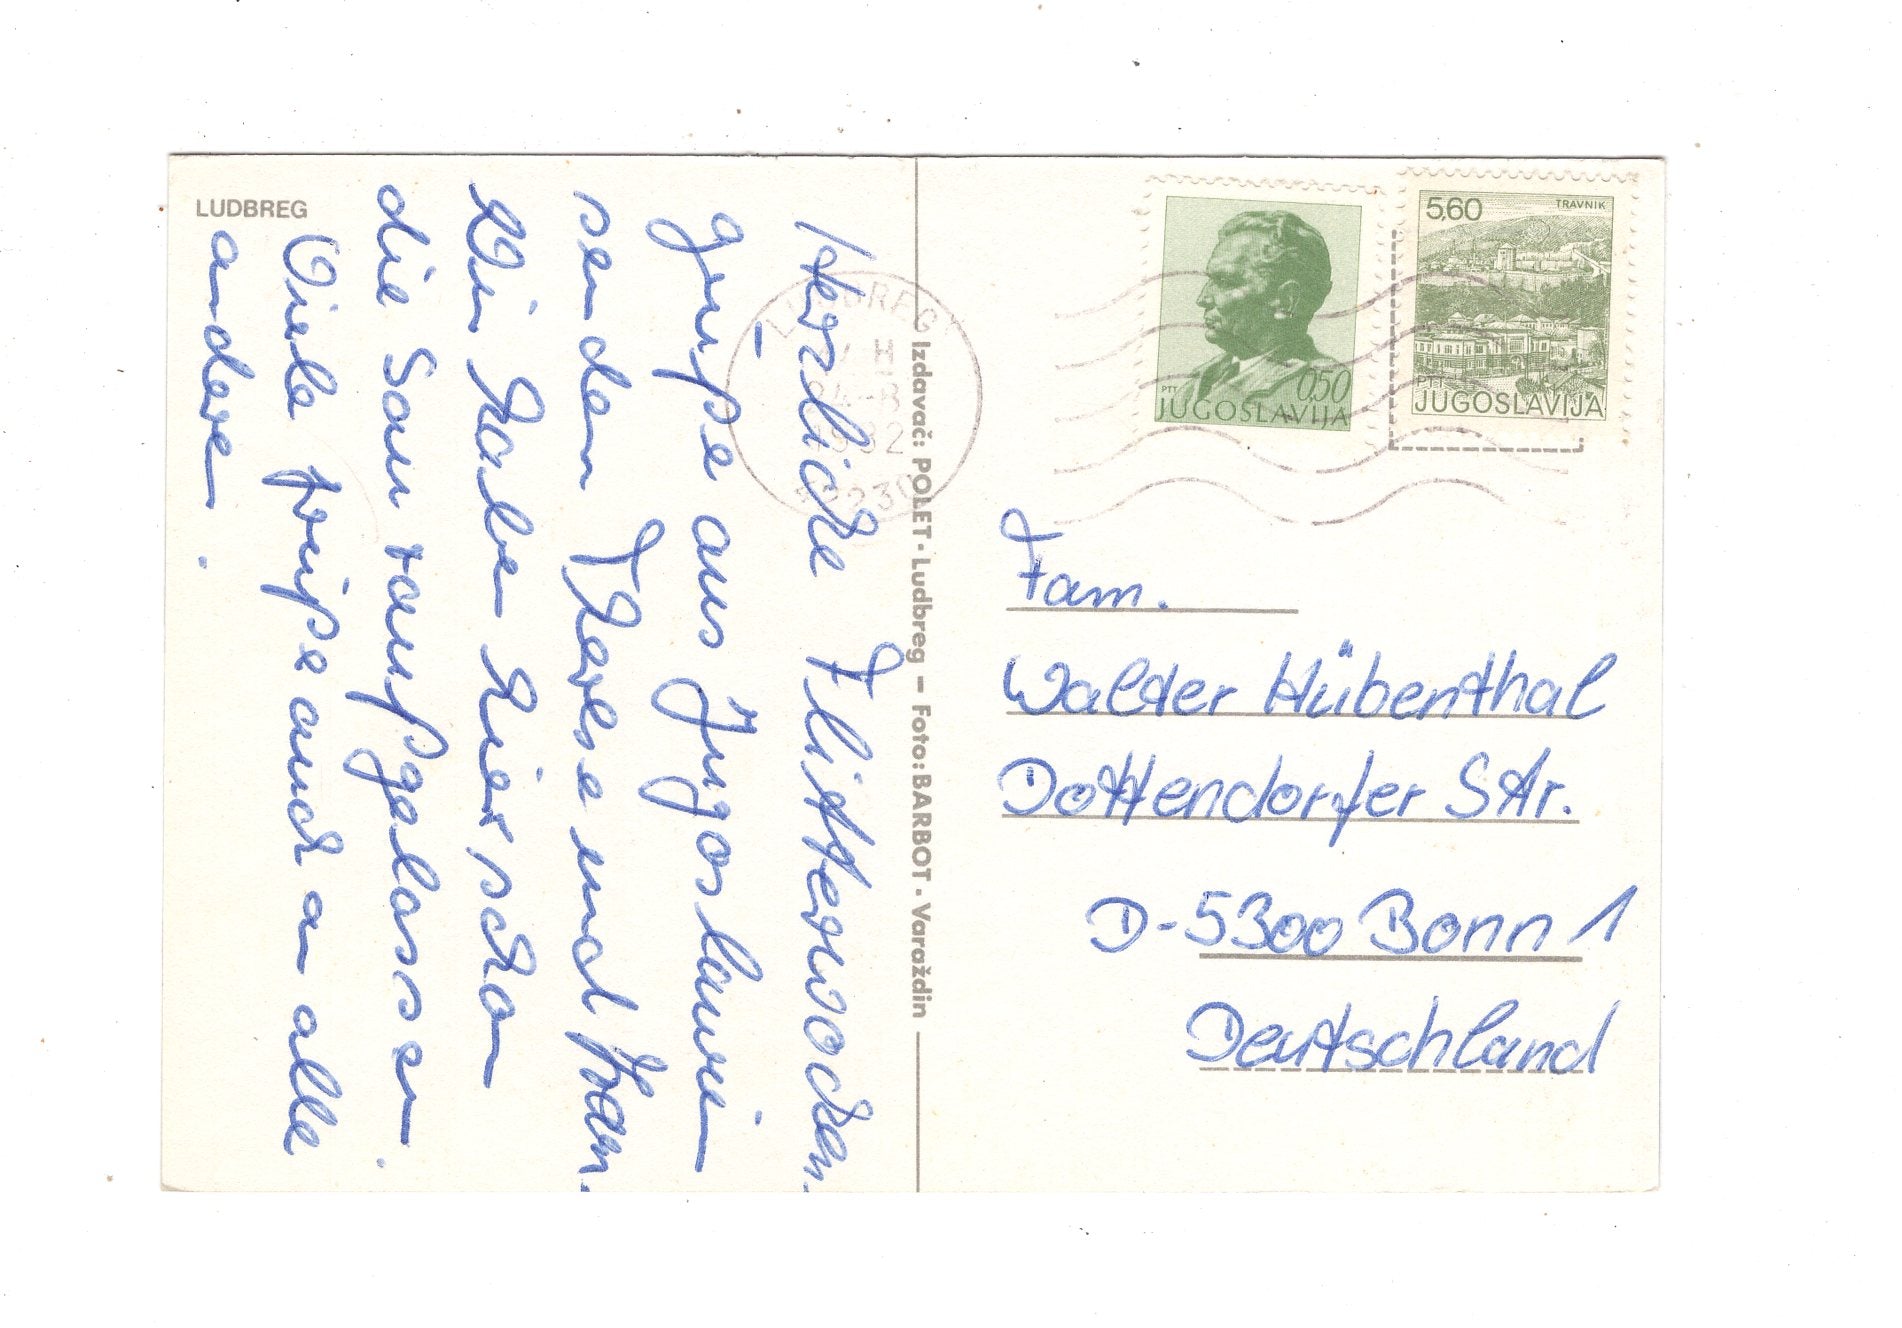 LUDBREG
Herzliche Flitterwochen-
grüße aus Jugoslawien
senden Therese und
Wir haben hier schon
die Sau raußgelassen.
Viele Grüße auch an alle
anderen.
Izdavač: POLET · Ludbreg – Foto: BARBOT · Varaždin
LUDBREG
1982
42230
0,50
PTT
JUGOSLAVIJA
5,60 TRAVNIK
PTT
JUGOSLAVIJA
Fam.
Walter Hübenthal
Dottendorfer Str.
D-5300 Bonn 1
Deutschland